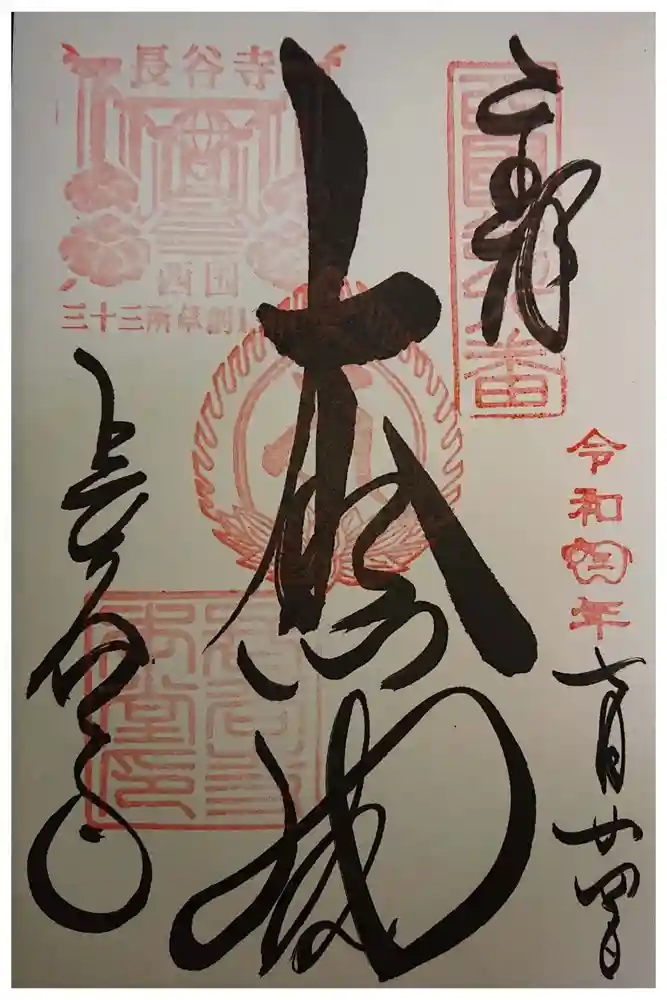 奉拝
西国第八番
令和四年
七月廿四日
大悲閣
長谷寺
長谷寺
西国
三十三所草創1